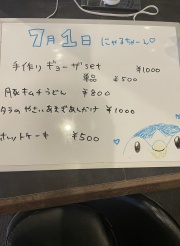 7月1日 にゃるちゃーん♡
手作りギョーザset ¥1000
単品 ¥500
豚キムチうどん ¥800
タラのやさいあまずあんかけ ¥1000
ホットケーキ ¥500